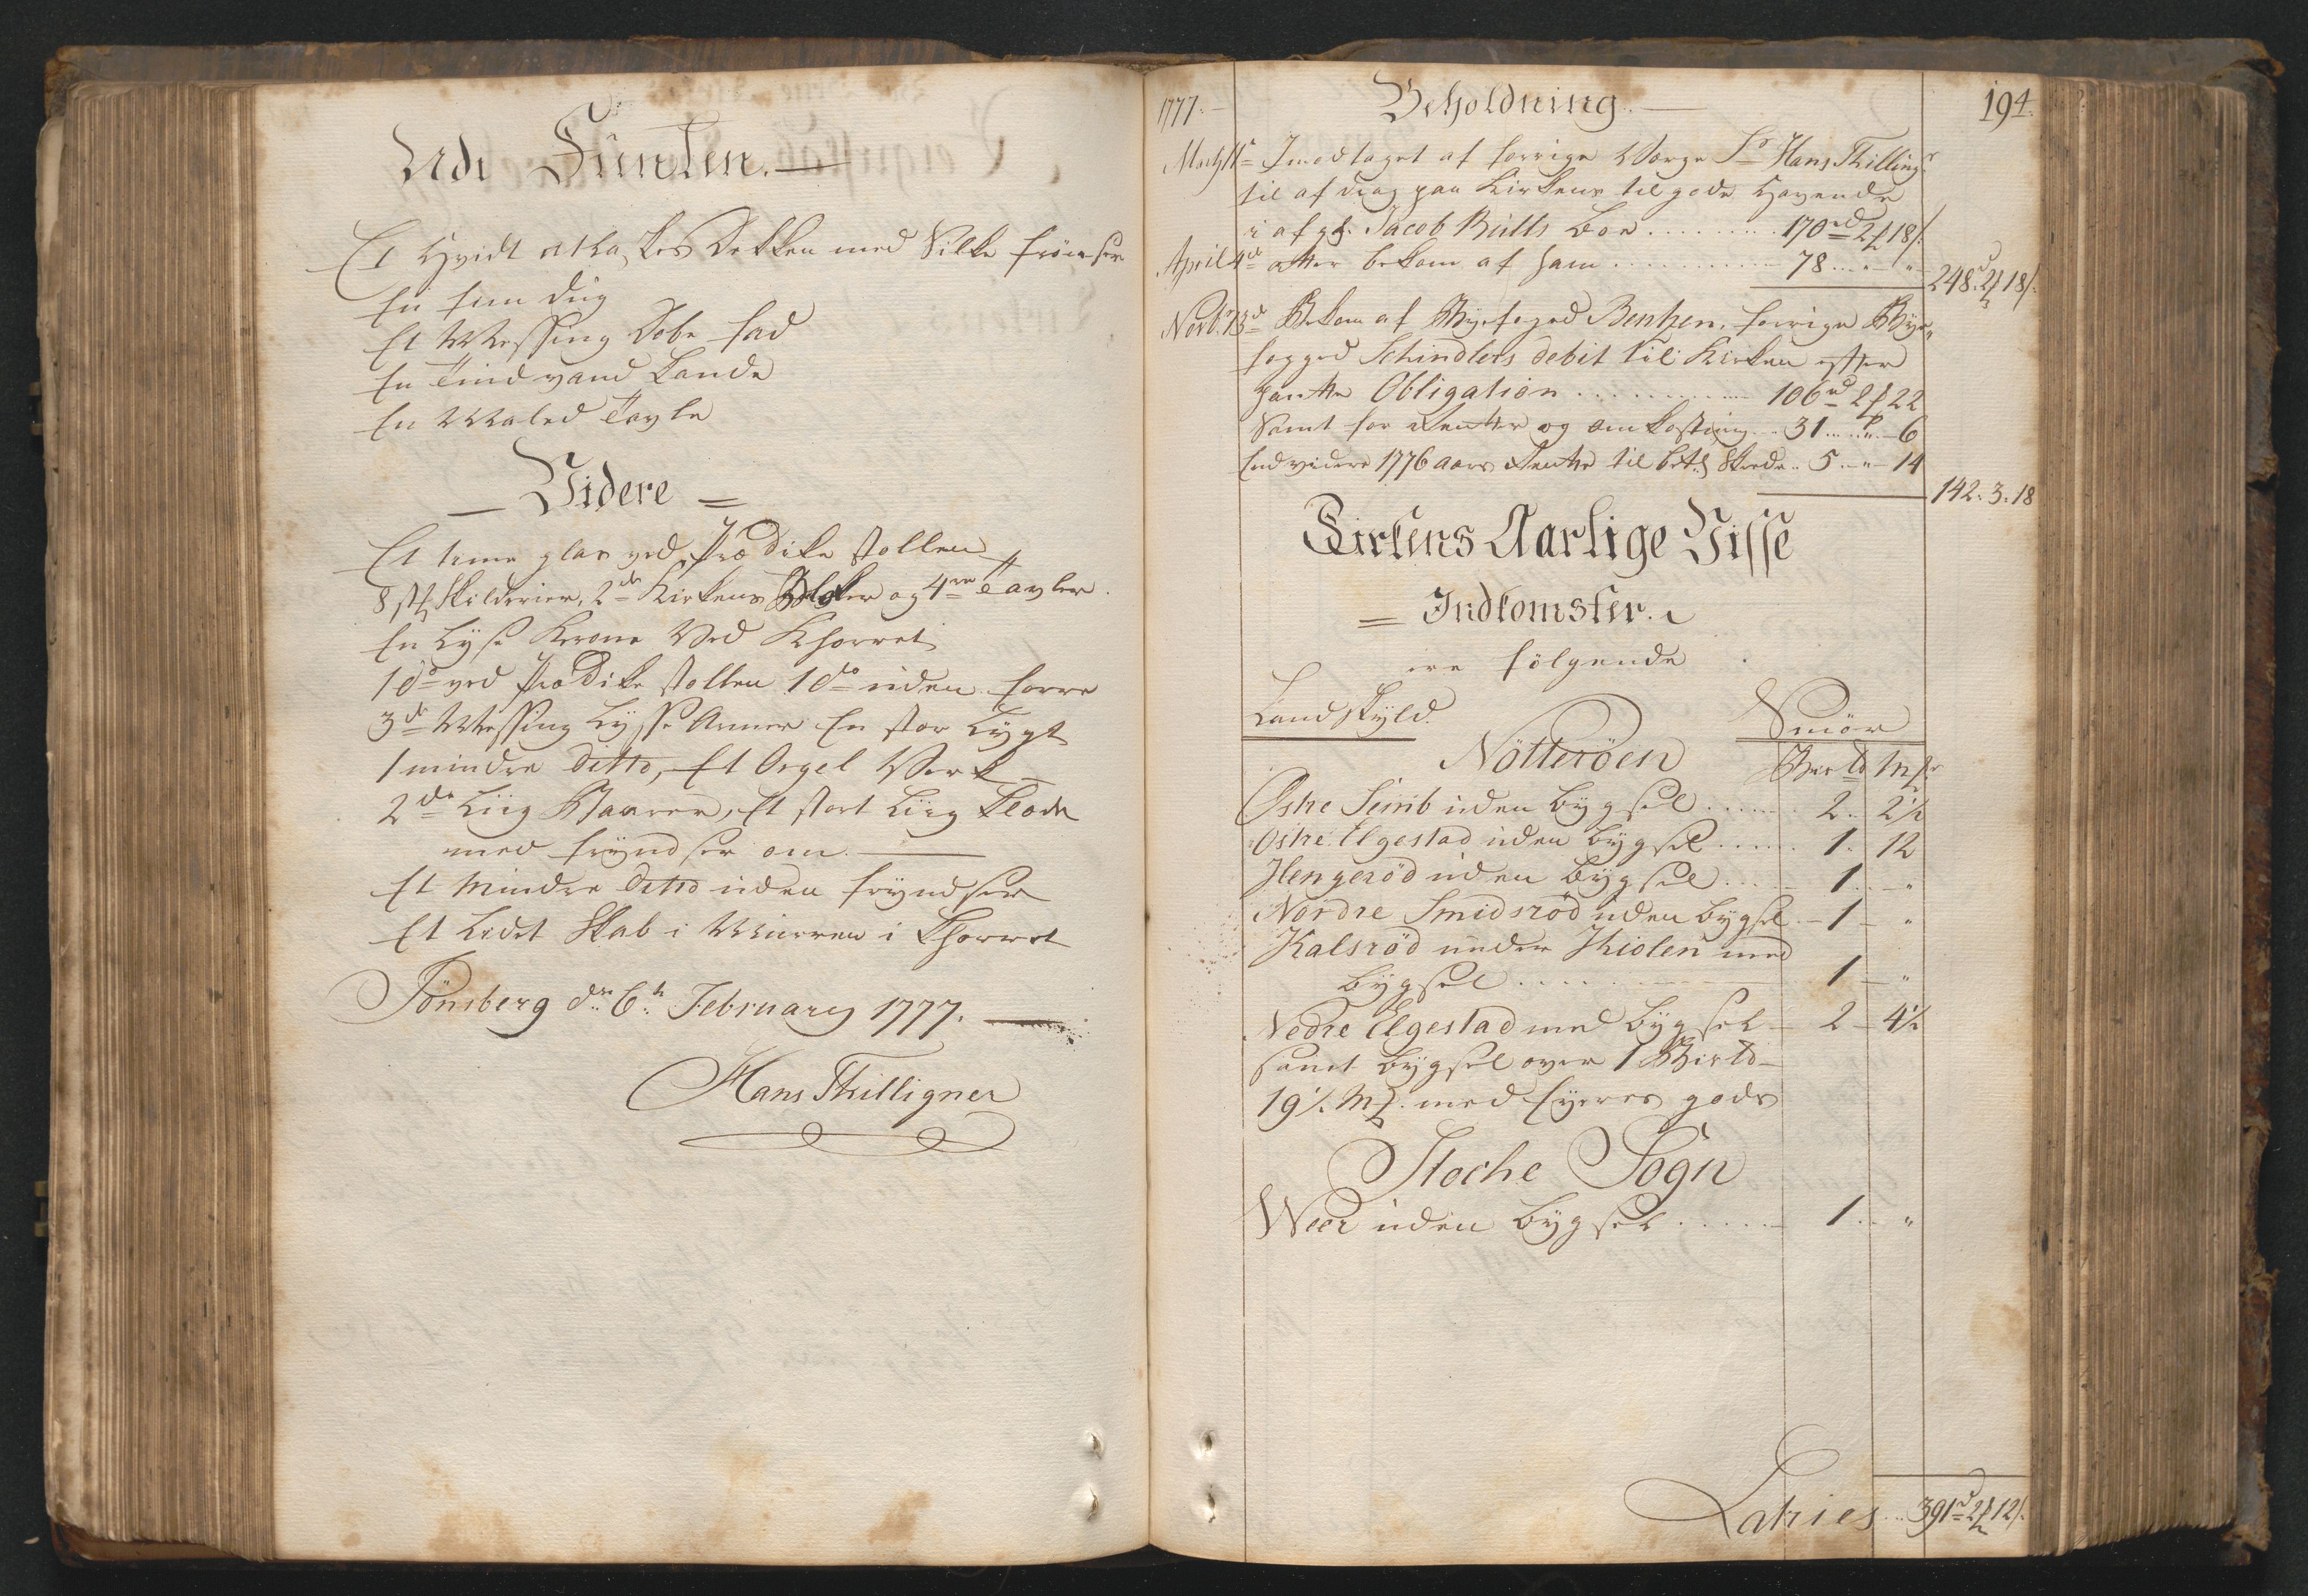 Udi Funten.
Et Hvidt atlaskes Dekken med Silke frönser
En fiin dug
Et Messing Döbe fad
En Tind vand Kande
En Maled Tavle
Videre
Et time glas ved Prædike stollen
8 st Skilderier, 2de Kirkens og 4re Tavler.
En Lyse Krone Ved Khorret
1 do ved Prædike stollen 1 do uden forre
3de Messing Lysse Armer En stor Lygt
1 mindre ditto, Et Orgel Verk
2de Liig Baarer, Et stort Liig Klæde
med fryndser om.
Et Mindre ditto uden fryndser
Et Lidet Skab i Muuren i Khorret
Tönsberg dn 6te February 1777.
Hans Thilligner
194.
1777. Beholdning.
Imodtaget af forrige Værge Sr Hans Thilling
til afdrag paa Kirkens tilgode Havende
i afg. Jacob Bülls Boe 170 rd 2 18
April 4de atter bekom af ham 78 " "
248. 2 18
Novbr 13de Bekom af Byefoged Bentzen, forrige Bye-
fogged Schindlers debit til Kirken efter
Obligation 106 rd 2 22
Samt for Renter og omkostning 31 " 6
End videre 1776 aars Rente til 5 " 14
142. 3. 18
Kirkens Aarlige Visse
Indkomster.
ere fölgende
Landskyld. Smör
Nötteröen
Östre Semb uden bygsel 2 2½
Ostre Elgestad uden bygsel 1. 12
Hengeröd uden bygsel 1 "
Nordre Smidsröd uden bygsel 1 "
Kalsröd under Thiolen med
bygsel 1 "
Nedre Elgestad med bygsel 2 4½
samt bygsel over 1
19½ med Eyeres gods
Stoche Sogn
Weer uden bygsel 1 "
Latries 391 2 12